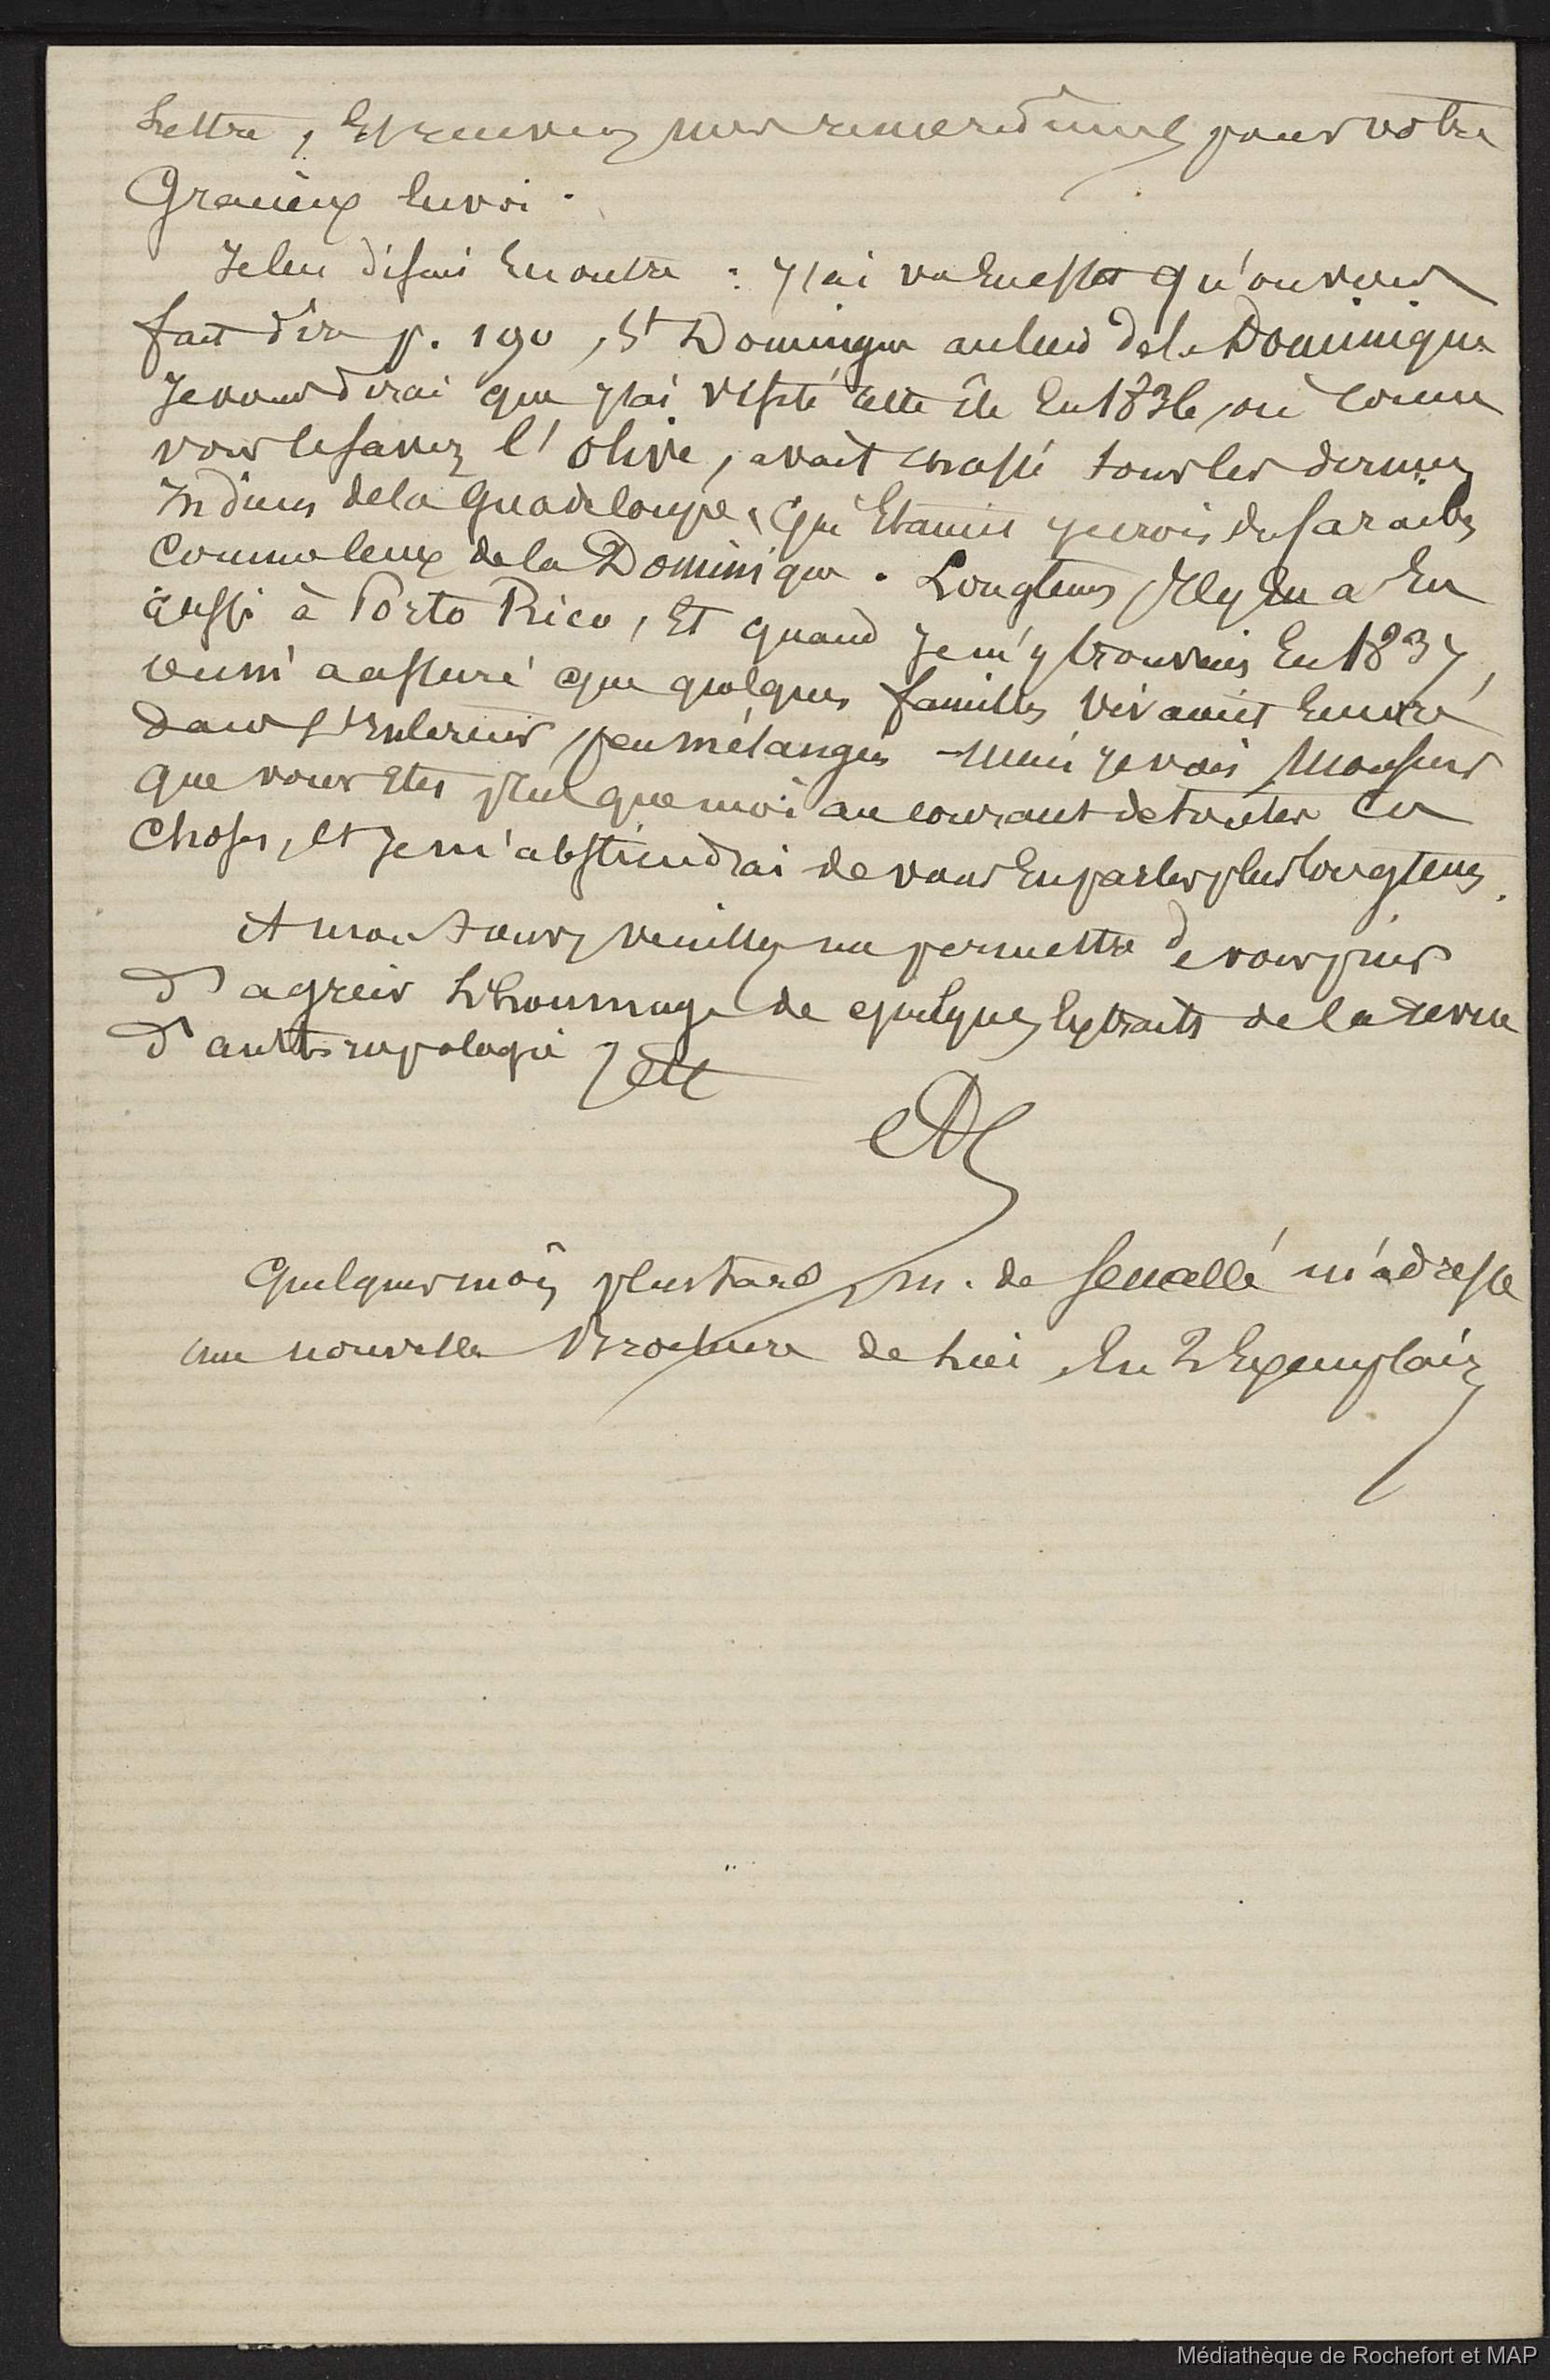 Lettre, Et recevez mes remerciements pour votre
Gracieux Envoi.
Je lui disais En outre : J'ai vu En effet qu'on vous
fait dire p. 190, St Domingue au lieu de la Dominique
Je vous dirai que J'ai visité cette île En 1836, où comme
vous le savez l'Olive, avait chassé tous les derniers
Indiens de la Guadeloupe, qui Etaient je crois des Caraibes
Comme ceux de la Dominique. Longtems Il y En a Eu
aussi à Porto Rico, Et quand Je m'y trouvais En 1837,
on m'a assuré que quelques familles vivaient Encore
dans l'Interieur, peu mélangées - Mais je vois Monsieur
que vous Etes plus que moi au courant de toutes ces
choses, Et Je m'abstiendrai de vous En parler plus longtems.
A mon tour, veuillez me permettre de vous prier
d'agréer L'hommage de quelques Extraits de la revue
d'anthropologie, Ett
Quelques mois plus tard, M. de Semallé m'adresse
une nouvelle Brochure de Lui, En 2 Exemplaires
Médiathèque de Rochefort et MAP